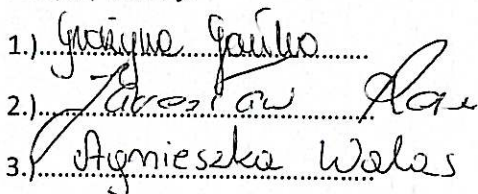 1.) Grażyna
2.) Jarosław
3.) Agnieszka Walas